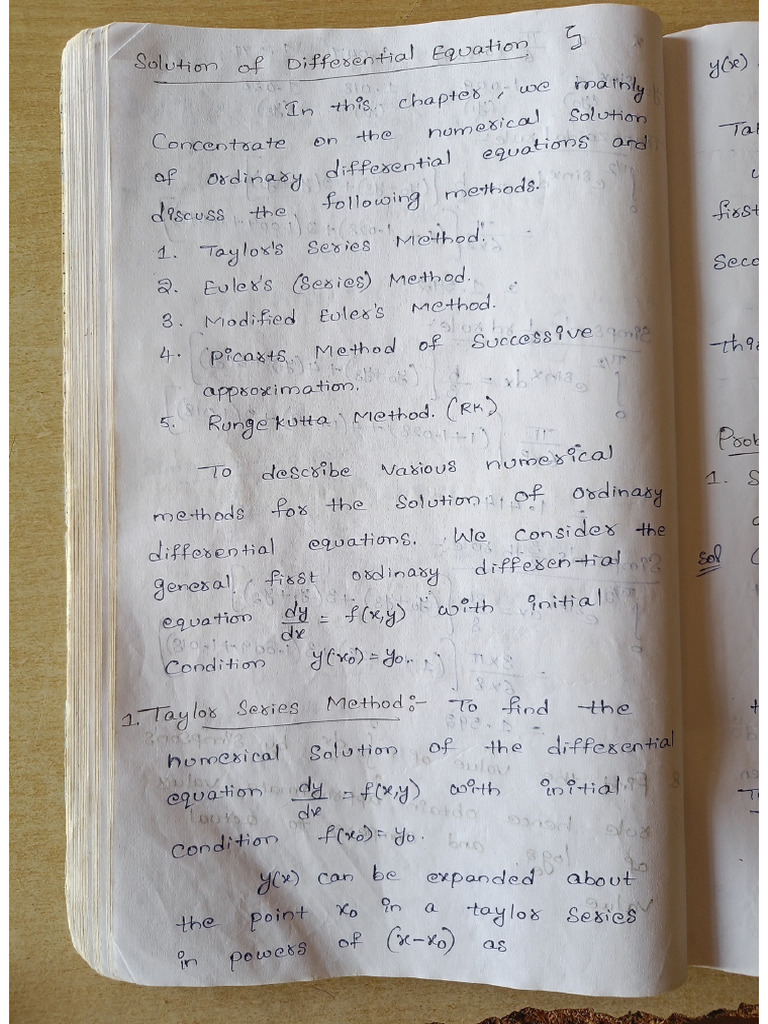 Solution of Differential Equation 5
In this chapter, we mainly
Concentrate on the numerical Solution
of ordinary differential equations and
discuss the following methods.
1. Taylor's Series Method.
2. Euler's (Series) Method.
3. Modified Euler's Method.
4. Picarts Method of Successive
approximation.
5. Runge Kutta Method. (RK)
To describe various numerical
methods for the solution of ordinary
differential equations. We consider the
general first ordinary differential
equation dy/dx = f(x,y) with initial
Condition y(x₀) = y₀.
1. Taylor Series Method:- To find the
numerical Solution of the differential
equation dy/dx = f(x,y) with initial
condition f(x₀) = y₀.
y(x) can be expanded about
the point x₀ in a taylor series
in powers of (x-x₀) as
y(x)
first
Prob
1.
Sol